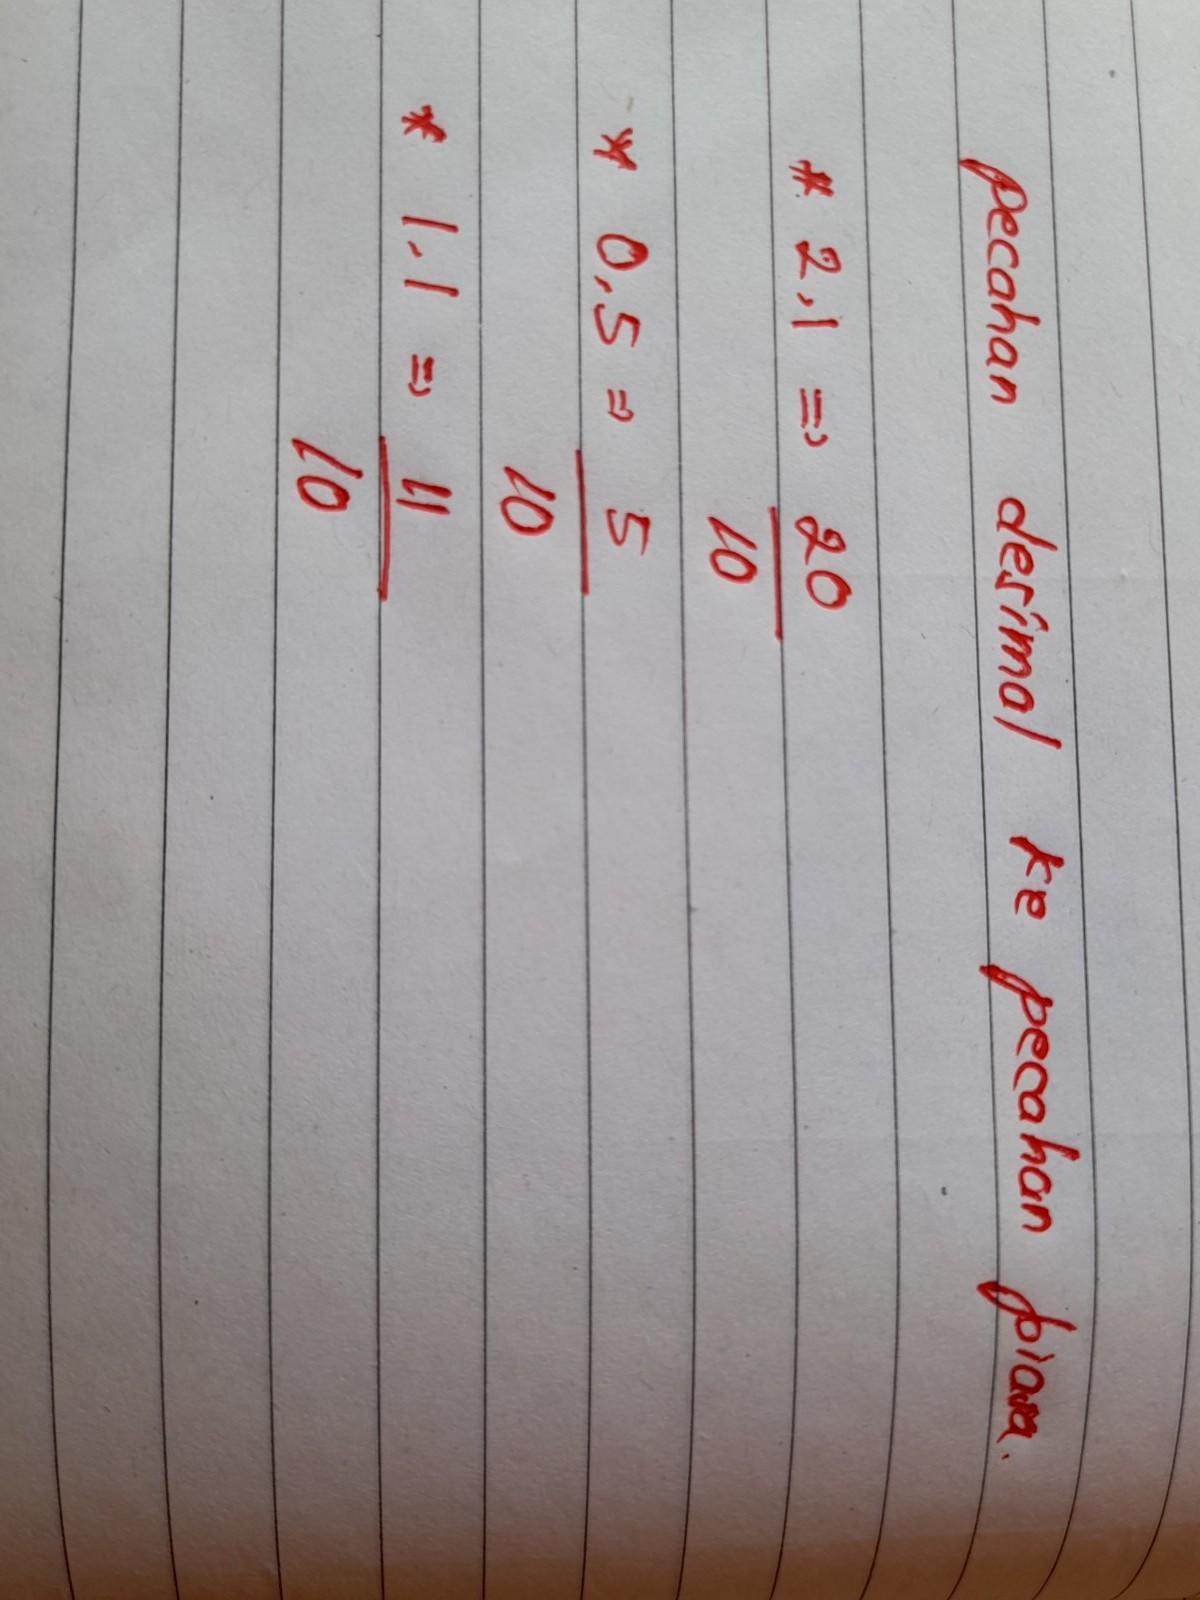 pecahan desimal ke pecahan piasa.
* 2,1 => 20/10
* 0,5 => 5/10
* 1,1 => 11/10